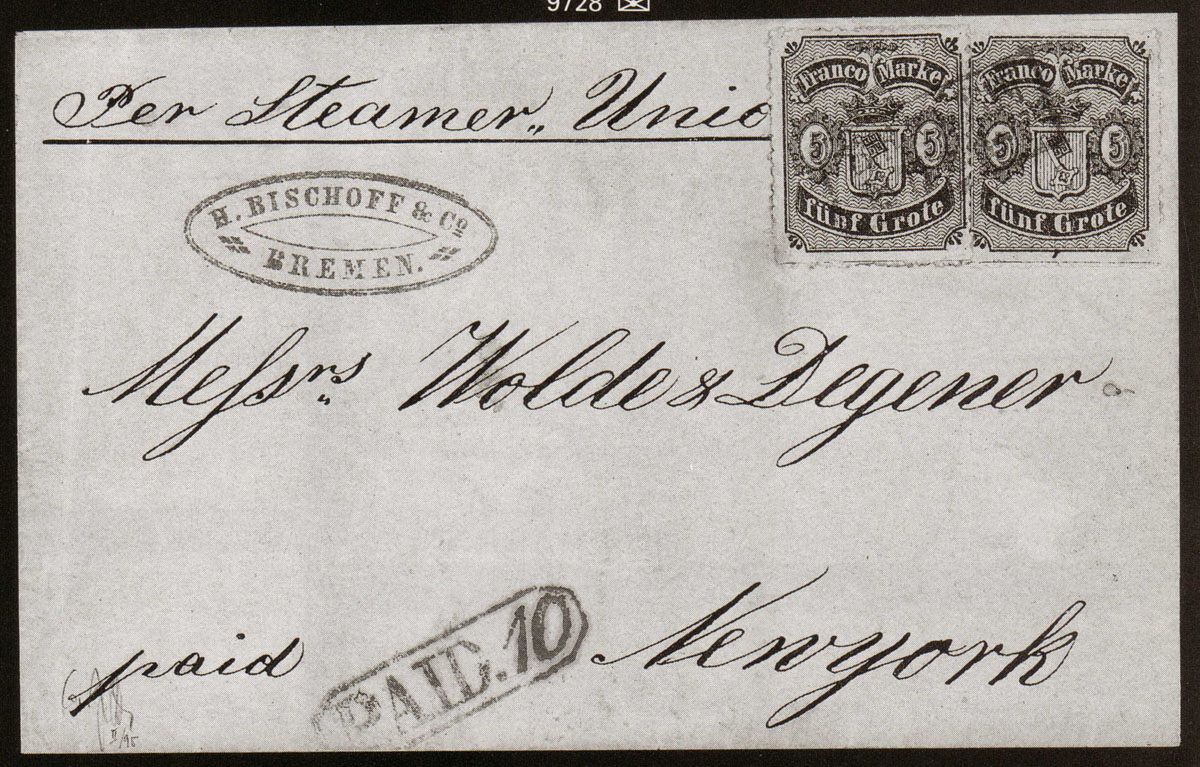 9728
Per Steamer „ Unio
Franco Marke
5 5
fünf Grote
Franco Marke
5 5
fünf Grote
H. BISCHOFF & Co
BREMEN.
Messrs Wolde & Degener
paid
PAID. 10
Newyork
II/95